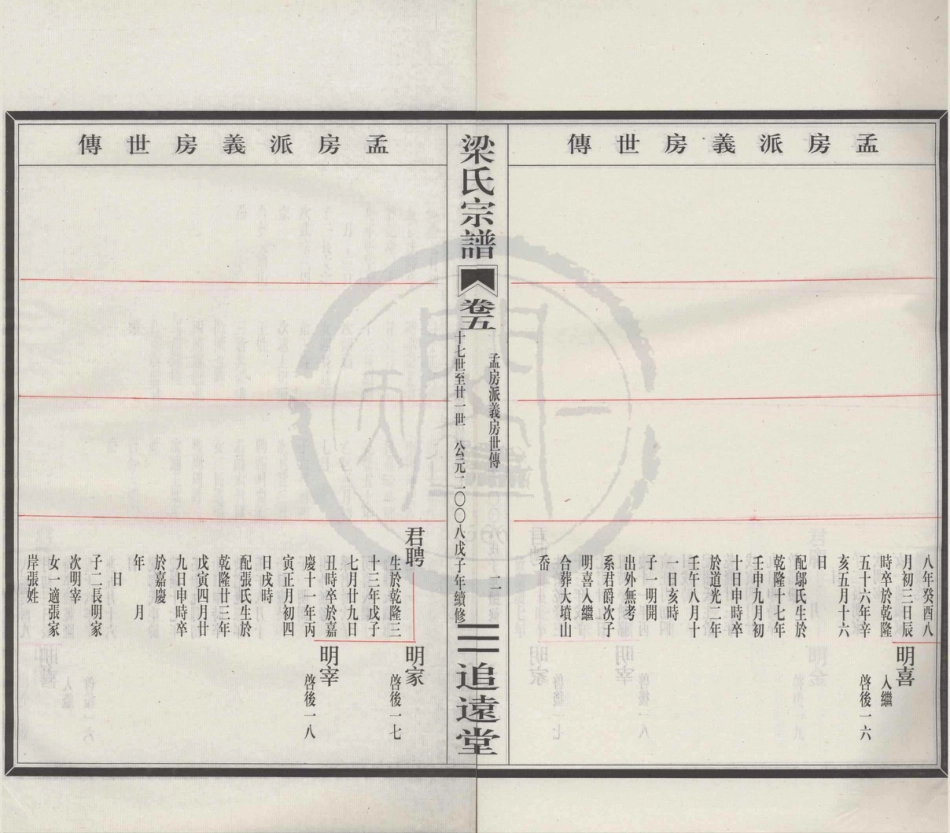 孟房派義房世傳
八年癸酉八
月初三日辰
時卒於乾隆
五十六年辛
亥五月十六
日
配鄔氏生於
乾隆十七年
壬申九月初
十日申時卒
於道光二年
壬午八月十
一日亥時
子一明開
出外無考
系君爵次子
明喜入繼
合葬大墳山
嵒
明喜
入繼
啓後一六
梁氏宗譜
卷五
孟房派義房世傳
十七世至廿一世 公元二〇〇八戊子年續修
二
三
追遠堂
孟房派義房世傳
君聘
生於乾隆三
十三年戊子
七月廿九日
丑時卒於嘉
慶十一年丙
寅正月初四
日戌時
配張氏生於
乾隆廿三年
戊寅四月廿
九日申時卒
於嘉慶
年 月
日
子二長明家
次明宰
女一適張家
岸張姓
明家
啓後一七
明宰
啓後一八